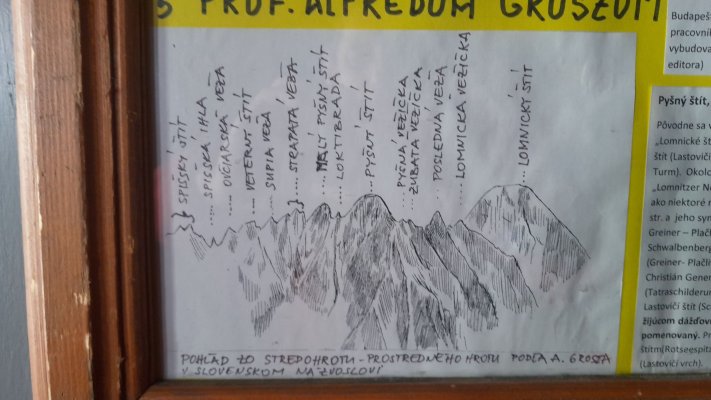 S PROF. ALFRÉDOM GROSZOM
SPIŠSKÝ ŠTÍT
SPIŠSKÁ IHLA
OVČIARSKA VEŽA
VETERNÝ ŠTÍT
SUPIA VEŽA
STRAPATÁ VEŽA
MALÝ PYŠNÝ ŠTÍT
LOKTIBRADA
PYŠNÝ ŠTÍT
PYŠNÁ VEŽIČKA
ZUBATÁ VEŽIČKA
POSLEDNÁ VEŽA
LOMNICKÁ VEŽIČKA
LOMNICKÝ ŠTÍT
POHĽAD ZO STREDOHROTU - PROSTREDNÉHO HROTU PODĽA A. GROSZA
V SLOVENSKOM NÁZVOSLOVÍ
Budapeš
pracovník
vybudova
editora)
Pyšný štít,
Pôvodne sa v
„Lomnické št
štít (Lastovičí
Turm). Okolo
„Lomnitzer No
ako niektoré
str. a jeho syn
Greiner – Plač
Schwalbenberg
(Greiner- Plačli
Christián Gener
(Tatraschilderun
Lastovičí štít (Sc
žijúcom dážďov
pomenovaný. Pr
štítm(Rotseespitz
(Lastovičí vrch).